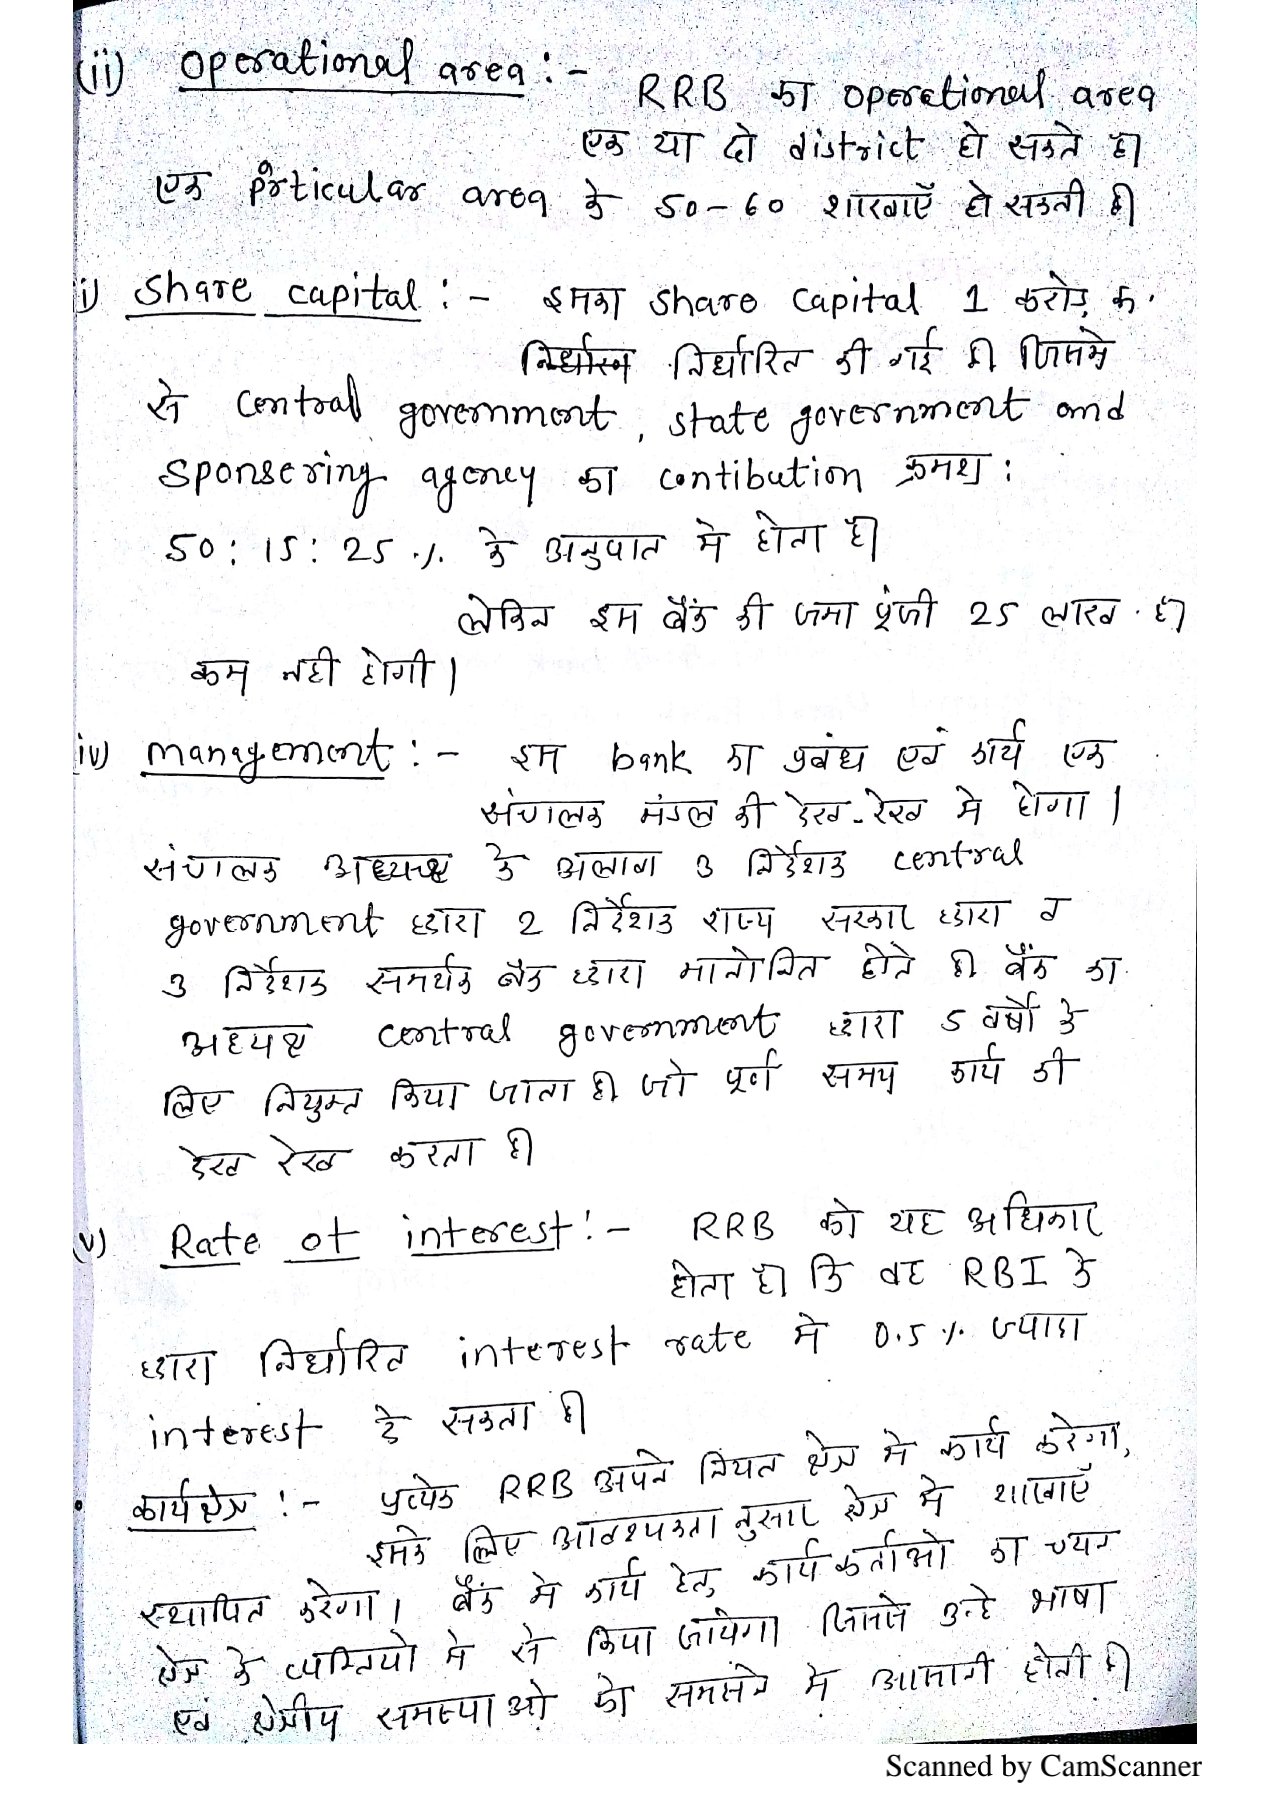 (ii) Operational area :- RRB का operational area
एक या दो district हो सकते है।
एक perticular area के 50-60 शाखाएँ हो सकती है।
i) Share capital :- इसका share capital 1 करोड़ रू.
निर्धारित की गई है। जिसमे
से central government, state government and
sponsering agency का contibution क्रमश:
50:15:25 % के अनुपात मे होता है।
लेकिन इस बैंक की जमा पूंजी 25 लाख से
कम नही होगी।
iv) management :- इस bank का प्रबंध एवं कार्य एक
संचालक मंडल की देख-रेख मे होगा।
संचालक अध्यक्ष के अलावा 3 निर्देशक central
government द्वारा 2 निर्देशक राज्य सरकार द्वारा व
3 निर्देशक समर्थक बैंक द्वारा मानोनित होते है। बैंक का
अध्यक्ष central government द्वारा 5 वर्षों के
लिए नियुक्त किया जाता है। जो पूर्ण समय कार्य की
देख रेख करता है।
(v) Rate of interest :- RRB को यह अधिकार
होता है। कि वह RBI के
द्वारा निर्धारित interest rate मे 0.5% ज्यादा
interest दे सकता है।
• कार्यक्षेत्र :- प्रत्येक RRB अपने नियत क्षेत्र मे कार्य करेगा,
इसके लिए आवश्यकता नुसार क्षेत्र मे शाखाएँ
स्थापित करेगा। बैंक मे कार्य हेतु कार्यकर्ताओ का चयन
क्षेत्र के व्यक्तियो मे से किया जायेगा जिससे उन्हे भाषा
एवं क्षेत्रीय समस्याओ को समझने मे आसानी होती है।
Scanned by CamScanner